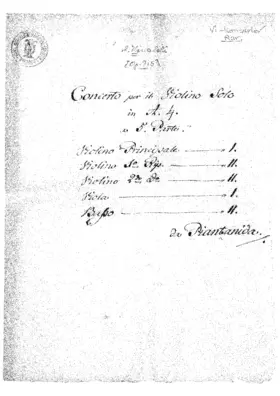 Concerto per il Violino Solo
in A. ♮.
a 5. Parti.
Violino Principale — I.
Violino 1mo Rip. — II.
Violino 2do Do — II.
Viola — I.
Basso — II.
da Piantanida.